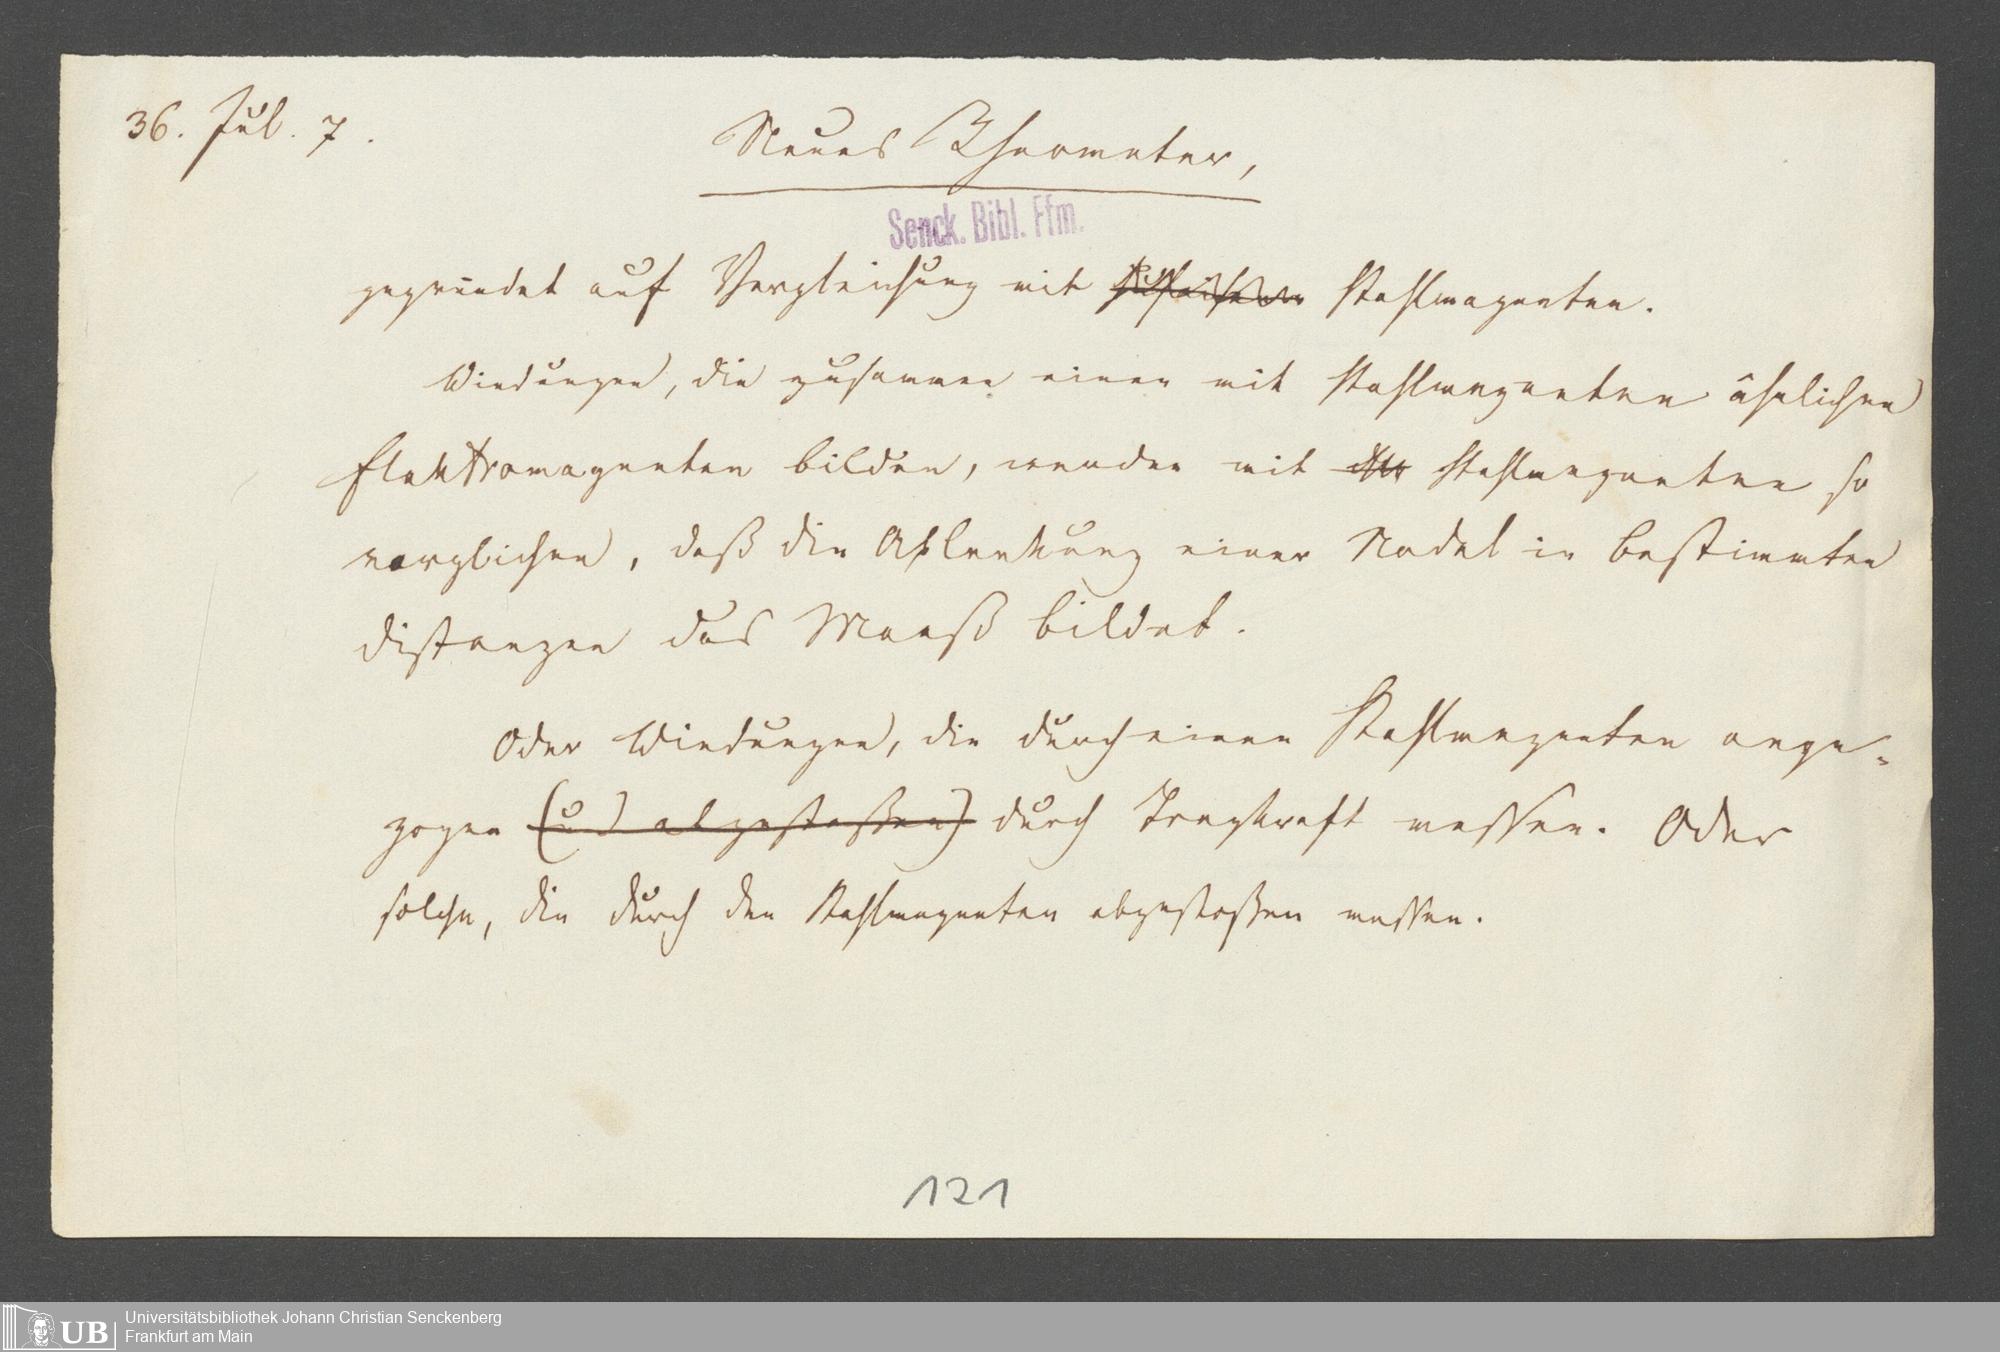 36. Jul. 7.
Neues Rheometer,
Senck. Bibl. Ffm.
gegründet auf Vergleichung mit Stahlmagneten.
Windungen, die zusammen einen mit Stahlmagneten ähnlichen
Elektromagneten bilden, werden mit Stahlmagneten so
verglichen, daß die Ablenkung einer Nadel in bestimmten
Distanzen das Maaß bildet.
Oder Windungen, die durch einen Stahlmagneten ange-
zogen (und abgestoßen) durch Tragkraft messen. Oder
solche, die durch den Stahlmagneten abgestoßen messen.
121
UB
Universitätsbibliothek Johann Christian Senckenberg
Frankfurt am Main